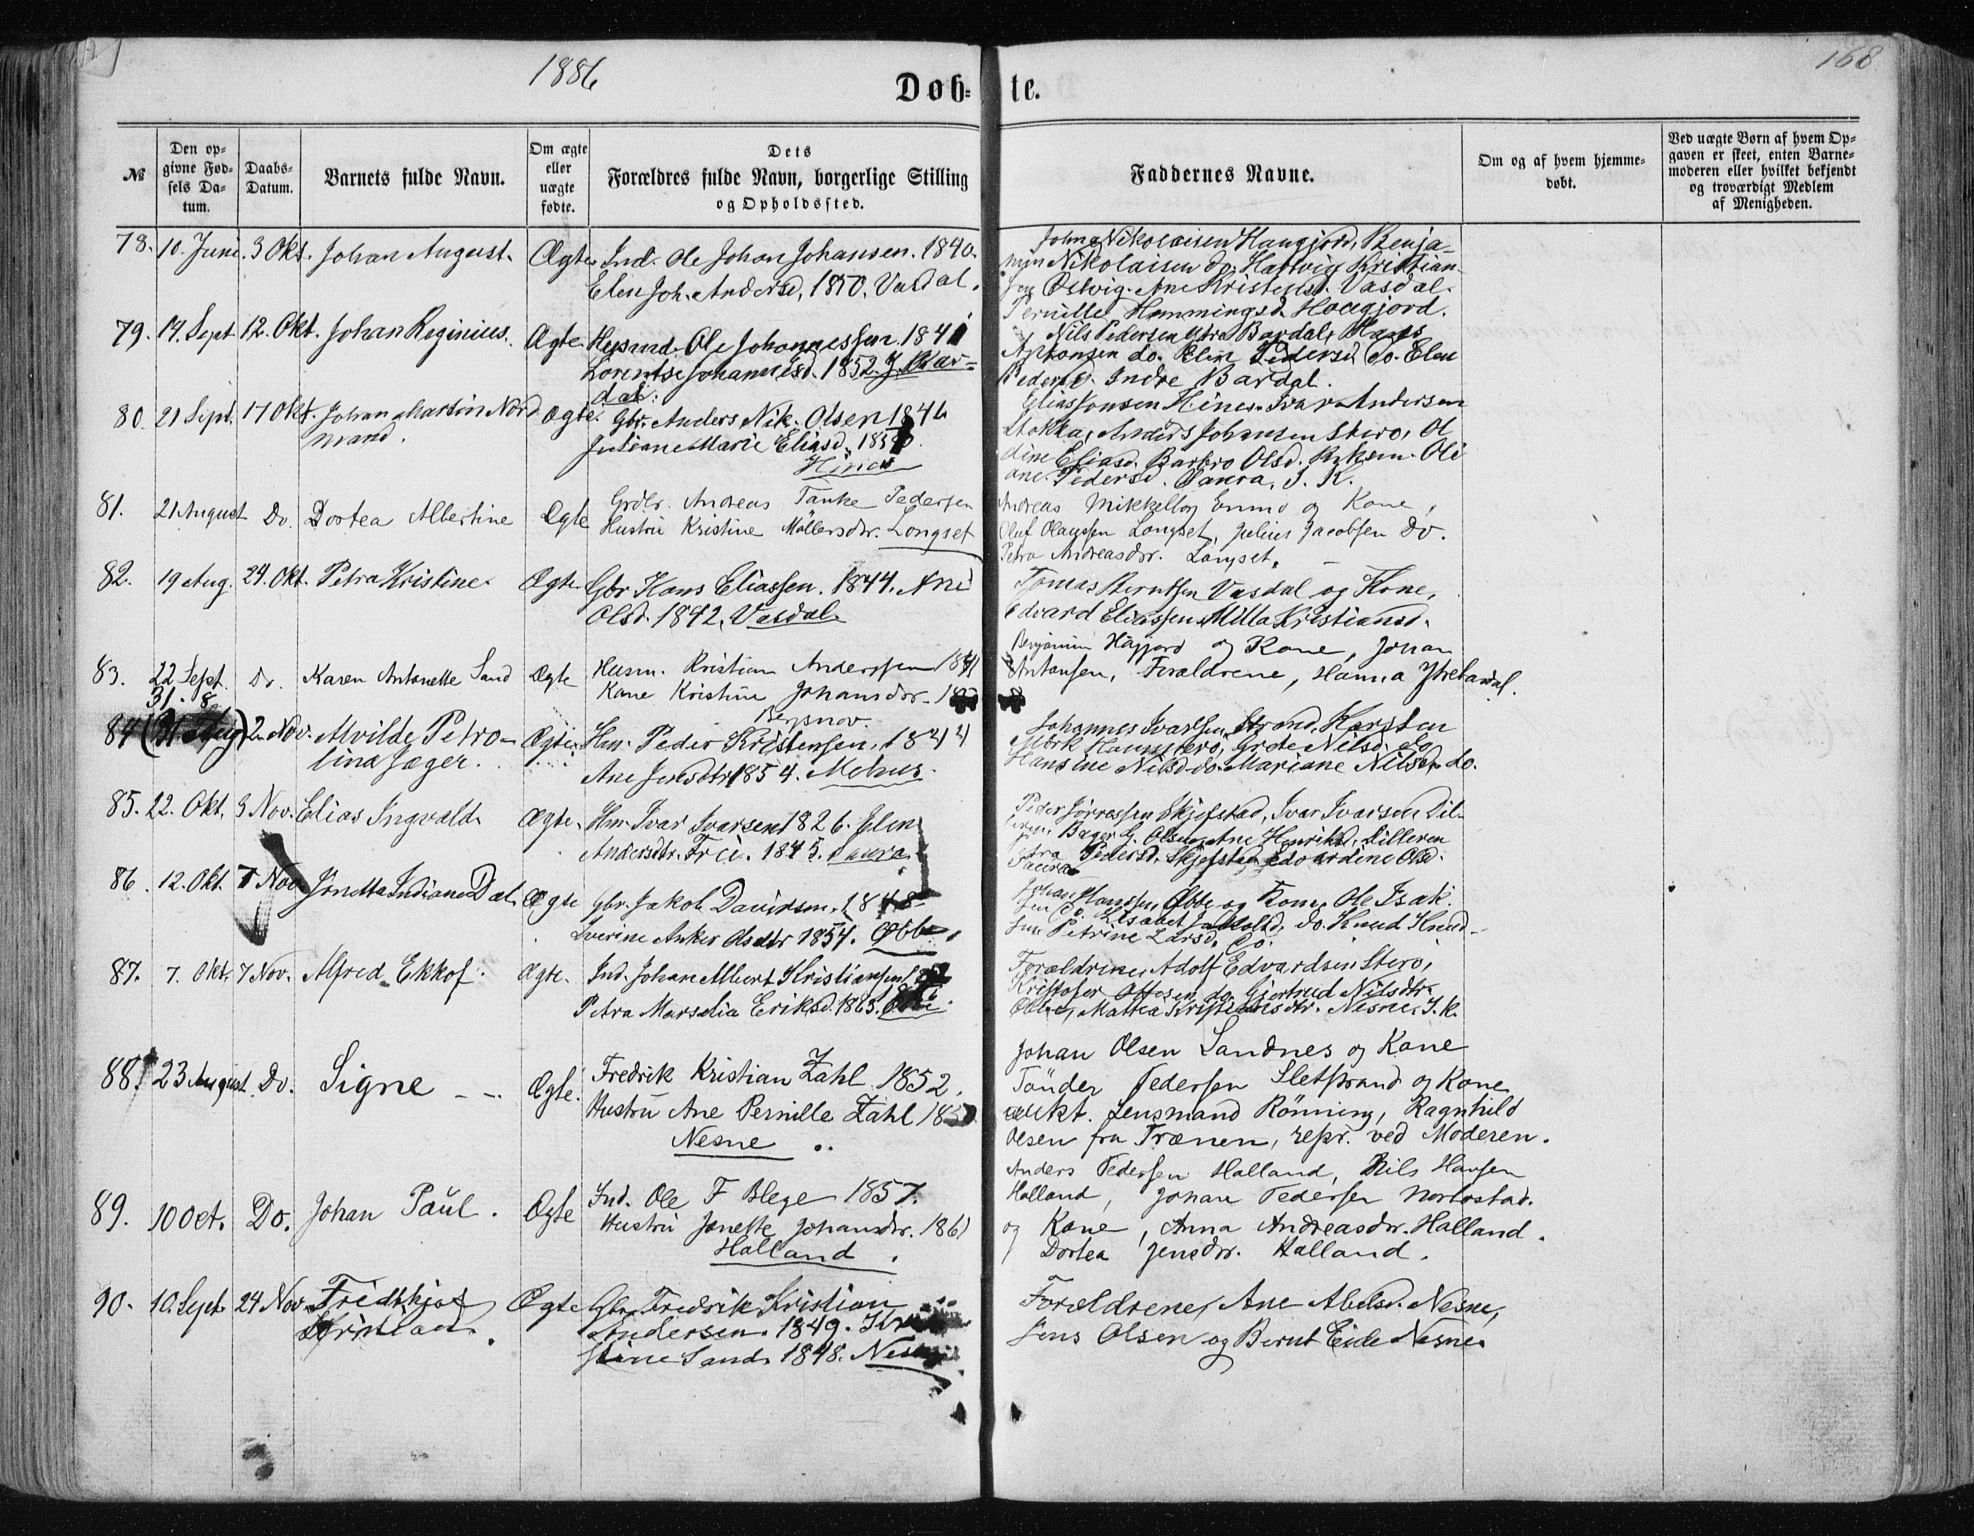 1886
168
Døb-
te.
№
Den op-
givne Fød-
sels Da-
tum.
Daabs-
Datum.
Barnets fulde Navn.
Om ægte
eller
uægte
fødte.
Dets
Forældres fulde Navn, borgerlige Stilling
og Opholdssted.
Faddernes Navne.
Om og af hvem hjemme-
døbt.
Ved uægte Børn af hvem Op-
gaven er skeet, enten Barne-
moderen eller hvilket bekjendt
og troværdigt Medlem
af Menigheden.
78. 10. Juni. 3 Okt. Johan August. Ægte Ind. Ole Johan Johansen. 1840.
Elen Joh. Andersd. 1850. Vasdal.
Nikolaisen Haugjord, Benja-
min Nikolaisen do, Hartvig Kristian-
Vasdal.
Pernille Hemmingsd. Hougjord.
79. 14. Sept 12. Okt. Johan Reginius. Ægte Ole Johannessen. 1841
Lorentse Johannesd. 1852. J. Bar-
dal.
Nils Pedersen Ytra Bardal, Hans
Antonsen do. Elin Pedersd. do. Elen
Pedersd. Indre Bardal.
80. 21 Sept. 17 Okt. Johan Martin Nord
mand. Ægte. Gbr. Anders Nik. Olsen 1846
Juliane Marie Eliasd.
Hines
Elias Jonsen Hines. Ivar Andersen
Stokka, Anders Johansen Stero, Ol
dine Eliasd. Barbro Olsd. Oli
ane Pedersd. Saura, I. K.
81. 21 August Do. Dortea Albertine Ægte Grdbr. Andreas Tanke Pedersen
Hustru Kristine Möllersdr. Longset
Andreas Mikkelborg Enmo og Kone,
Oluf Olaussen Longset, Julius Jacobsen Do.
Petra Andreasdr. Longset.
82. 19 Aug. 24. Okt. Petra Kristine. Ægte Gbr Hans Eliassen. 1844. Ane
Olsd. 1842. Vasdal
Tomas Berntsen Vasdal og Kone,
Edvard Eliassen, Milla Kristiansd.
83. 22 Sept. Do. Karen Antonette Sand Ægte Husm. Kristian Anderssen
Kone Kristine Johansdr.
Benjamin og Kone, Johan
Antonsen, Forældrene, Hanna Ytrebardal.
31. 8
84 (31 Aug) 2 Nov. Alvilde Petro-
lina Jæger. Ægte Hm. Peder Kristensen. 1844
Ane Jensdtr 1854. Mehus.
Johannes Ivarsen Strand, Karsten
Stero, Grete Nilsd. do
Hansine Nilsd. do. Mariane Nilsd. do.
85. 22. Okt. 3 Nov. Elias Ingvald. Ægte. Hm. Ivar Ivarsen 1826. Elen
Andersdtr. 1845. Saura
Skjefstad, Ivar Ivarsen Dil-
Olsen, Ane Henriksd. Dilleren
Pedersd. Skjefstad, Edvardine Olsd.
Saura
86. 12. Okt. 7 Nov. Jonetta Indiane Dal. Ægte Gbr. Jakob Davidsen. 1848
Sverine Anker Olsdtr 1854. Øbbe
Johan Hansen Øbbe og Kone, Ole Isak-
sen do. Lisabet Jakobsd. do. Knud Knud-
sen Petrine Larsd. do.
87. 7. Okt. 7 Nov. Alfred Ekkof. Ægte. Ind. Johan Albert Kristiansen
Petra Marselia Eriksd. 1863.
Forældrene, Adolf Edvardsen Stero,
Kristofer Ottesen do. Gjertrud Nilsdtr.
Øbbe, Mattea Kristiansdtr. Nesne, I. K.
88. 23 August. Do. Signe Ægte. Fredrik Kristian Zahl 1852.
Hustru Ane Pernille Zahl
Nesne
Johan Olsen Sandnes og Kone
Tönder Pedersen Sletstrand og Kone
Lensmand Rönning, Ragnhild
Olsen fra Trænen, repr. ved Moderen.
89. 10 Oct. Do. Johan Paul. Ægte Ind. Ole F Blege 1857.
Hustru Jonette Johansdr. 1861
Halland
Anders Pedersen Halland, Nils Hansen
Halland, Johan Pedersen
og Kone, Anna Andreasdr. Halland.
Dortea Jensdr. Halland.
90. 10. Sept 24 Nov Fridtkjof
Kristian. Ægte Gbr. Fredrik Kristian
Andersen. 1849.
Sand. 1848. Nesne
Forældrene, Ane Abelsd. Nesne,
Jens Olsen og Bernt Eide Nesne.